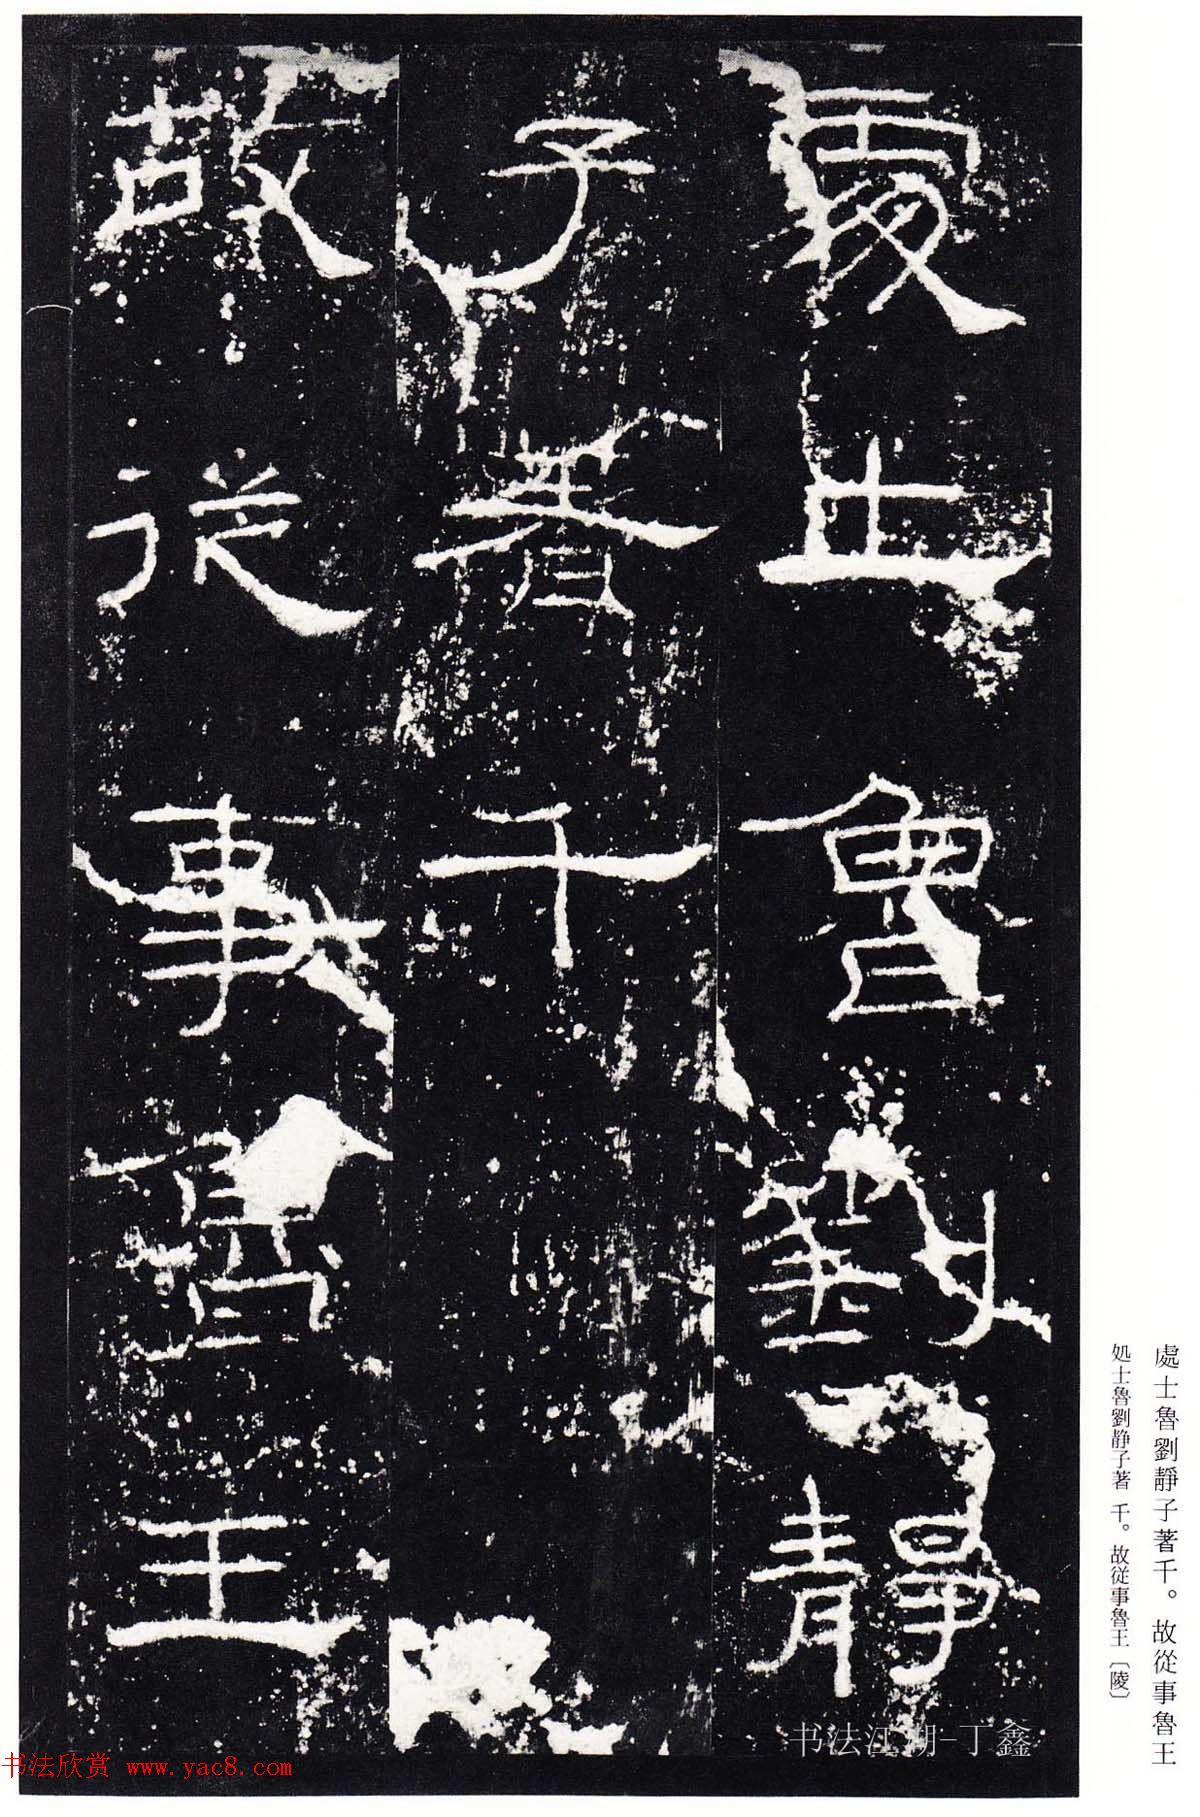 處士魯劉靜
子著千
故從事魯王
處士魯劉靜子著千。故從事魯王
処士魯劉静子著 千。故従事魯王〔陵〕
书法江湖-丁鑫
书法欣赏 www.yac8.com